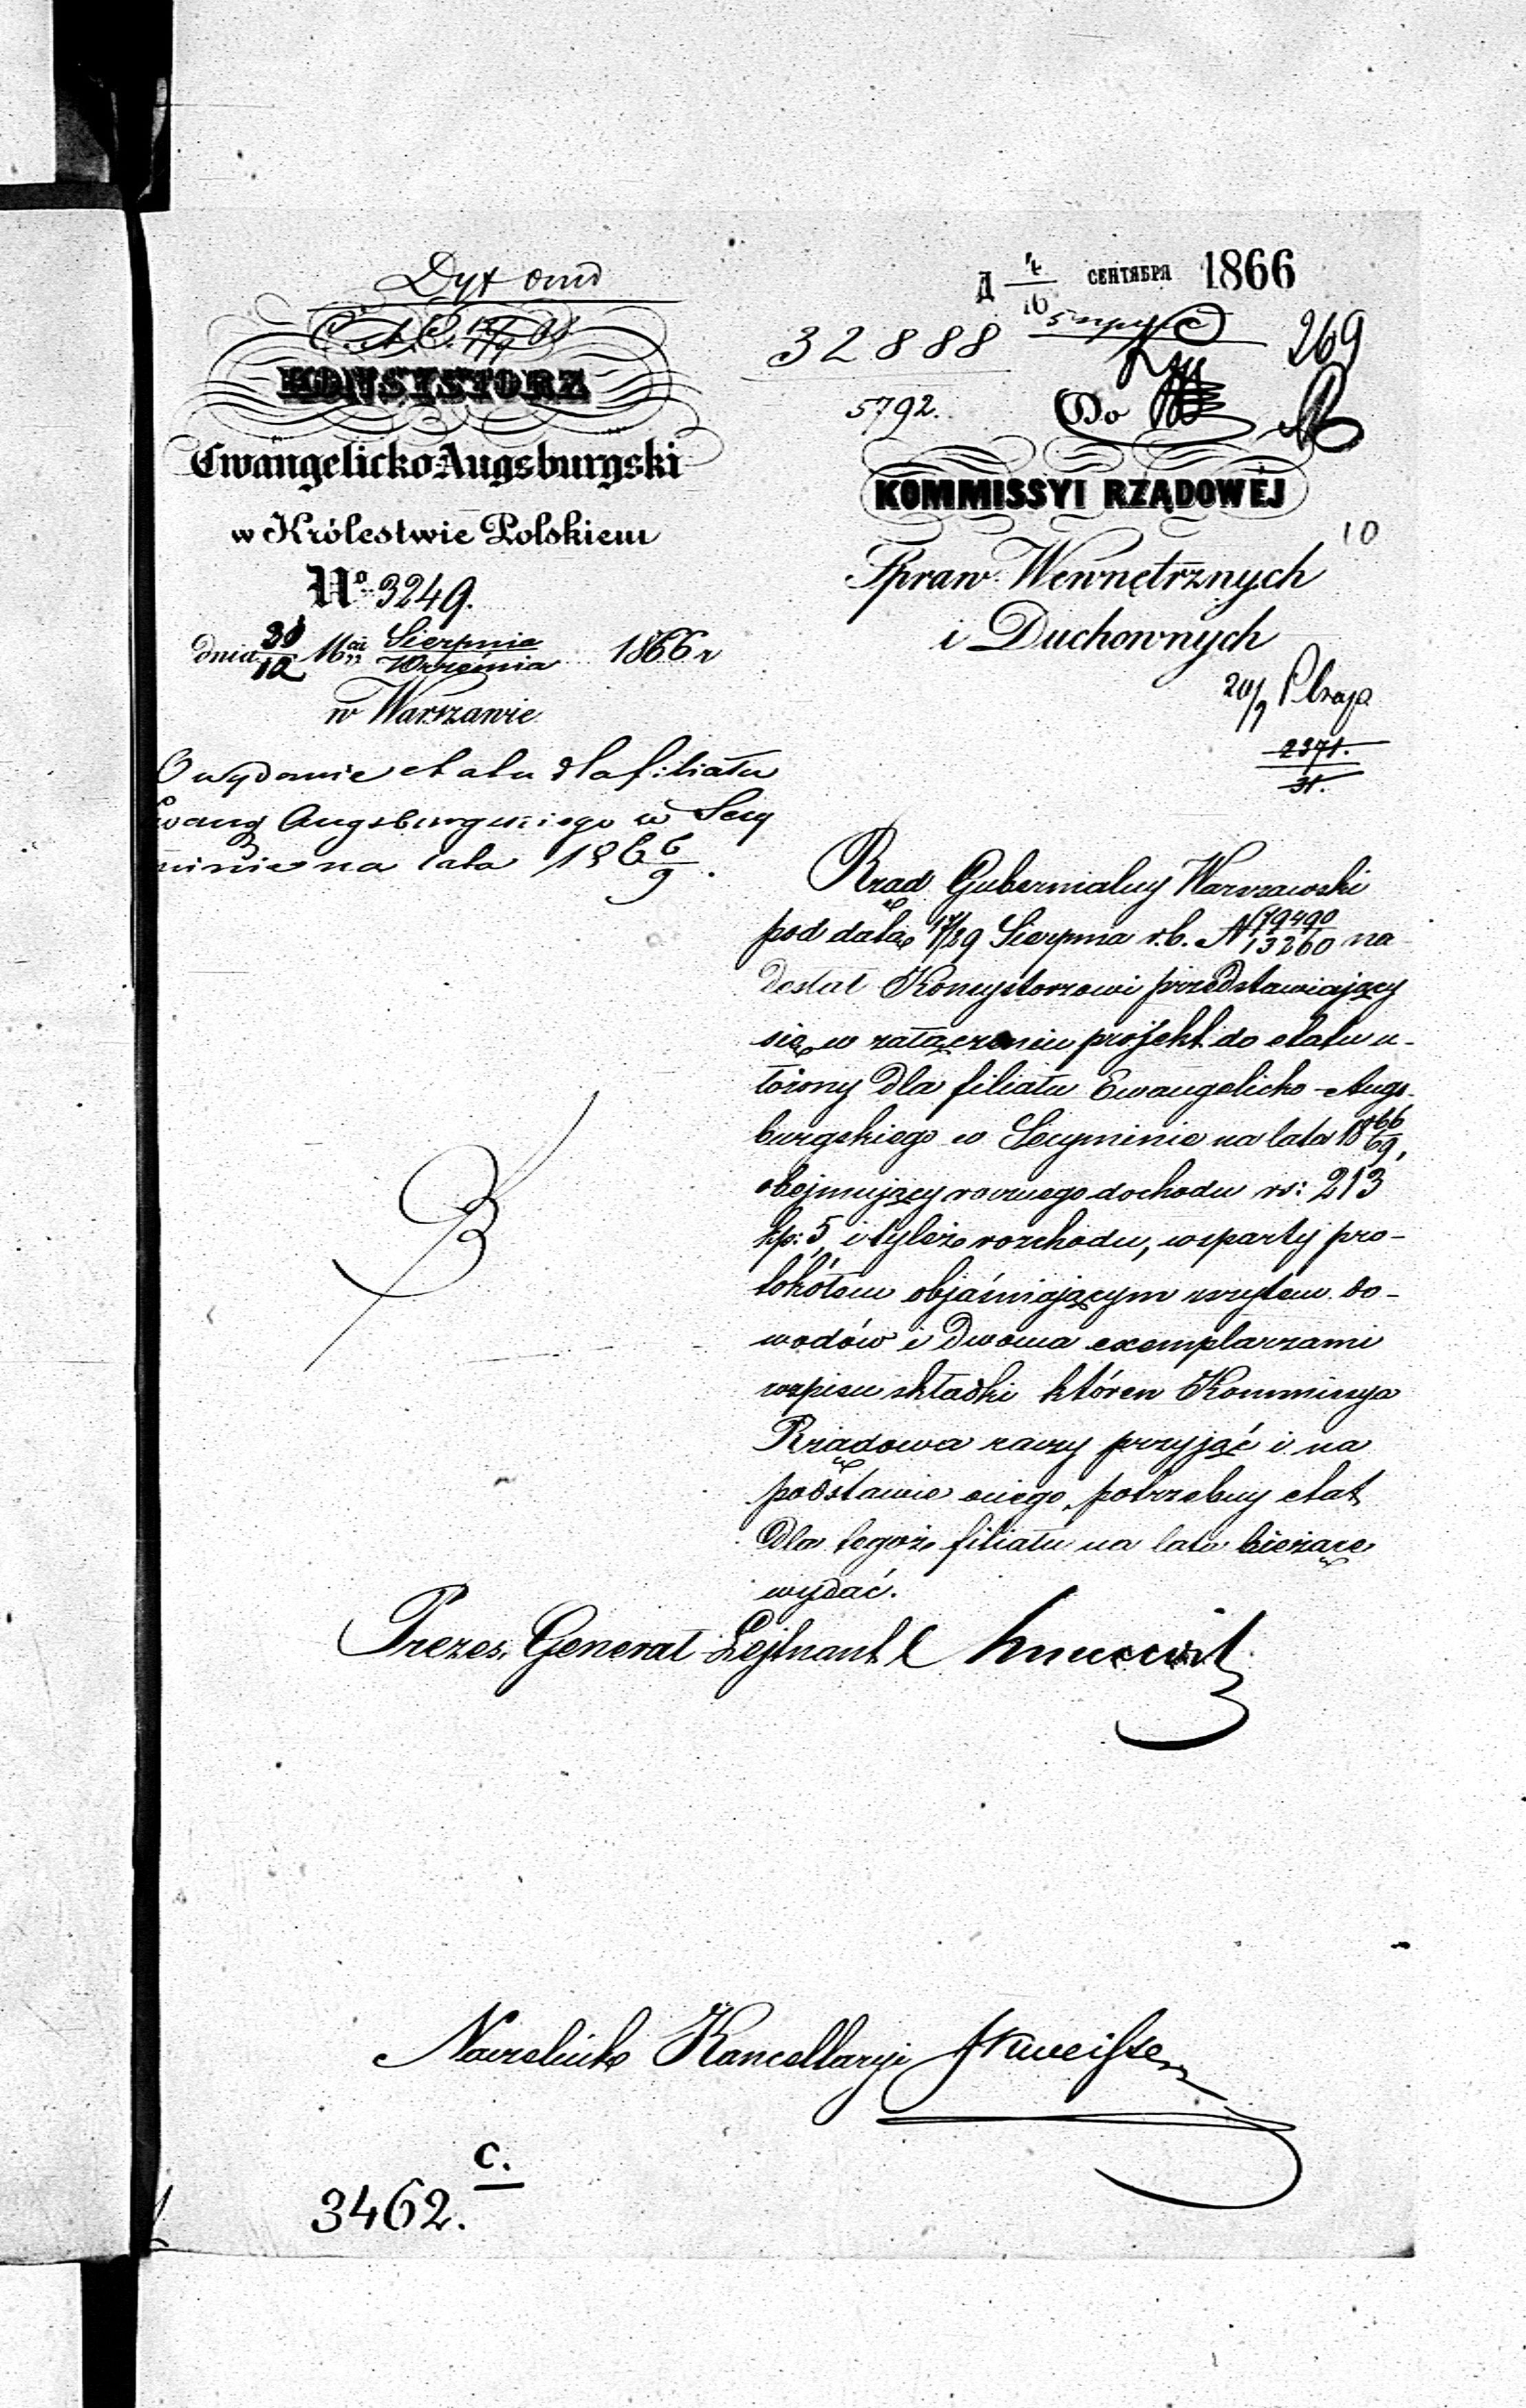 Dyt
KONSYSTORZ
Ewangelicko-Augsburgski
w Królestwie Polskiem
No 3249.
dnia 12 Mca Sierpnia Września 1866 r
w Warszawie
O wydanie etatu dla filiału
Ewang Augsburgskiego w Secy
minie na lata 186 6/9.
Д 4/16 СЕНТЯБРЯ 1866
32888
269
5792.
Do
KOMMISSYI RZĄDOWÉJ
10
Spraw Wewnętrznych
i Duchownych
20/9
2371.
31.
Rząd Gubernialny Warszawski
pod datą 17/29 Sierpnia r.b. N 79490/13260 na
desłał Konsystorzowi przedstawiający
się w załączeniu projekt do etatu u-
łożony dla filiału Ewangelicko-Augs-
burgskiego w Secyminie na lata 18 66/69,
obejmujący rocznego dochodu rs: 213
kp: 5, i tyleż rozchodu, wsparty pro-
tokółem objaśniającym zszytem do-
wodów i dwoma exemplarzami
rozpisu składki któren Kommissya
Rządowa raczy przyjąć i na
podstawie onego, potrzebny etat
dla tegoż filiału na lata bieżące
wydać.
Prezes, Generał-Lejtnant
Naczelnik Kancellaryi
c.
3462.